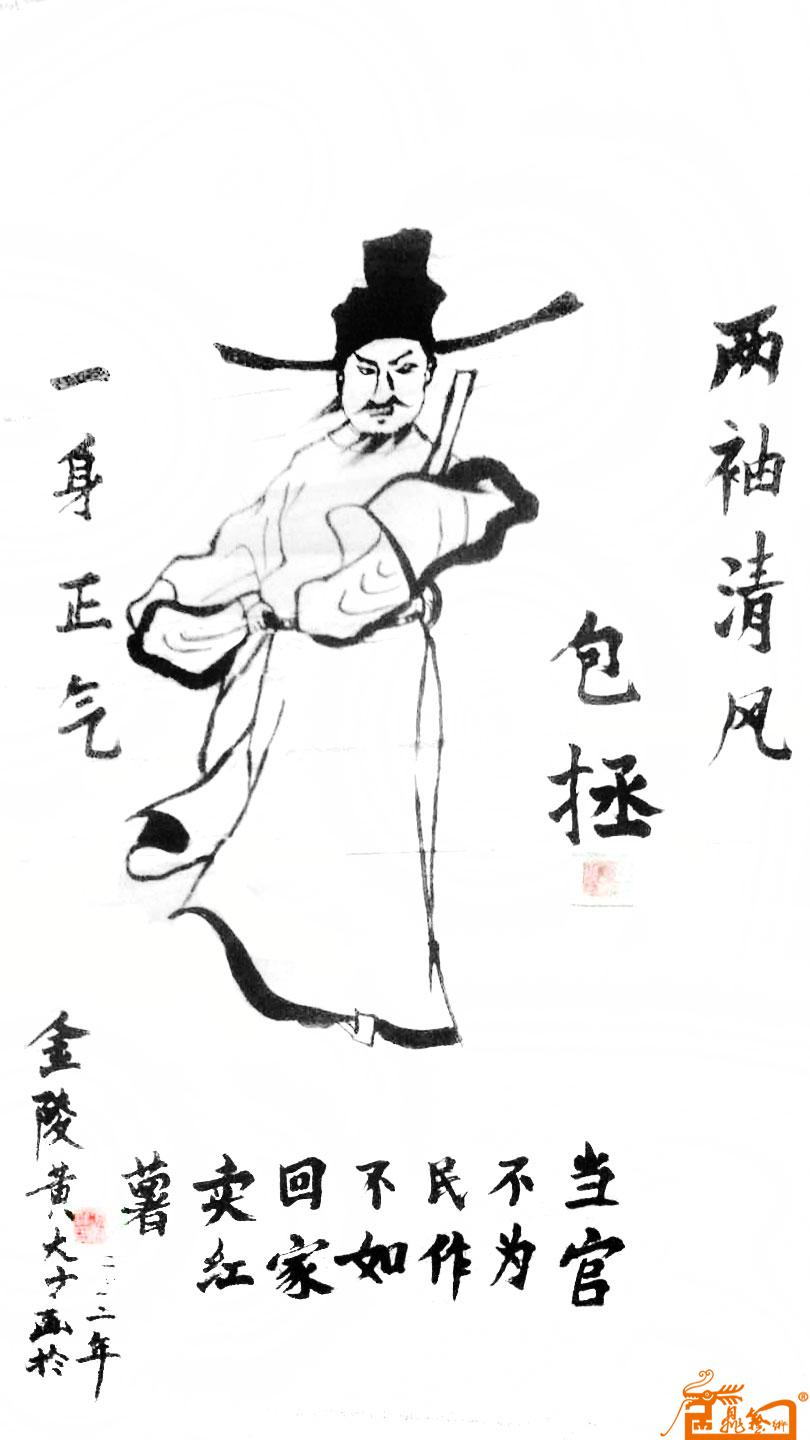 两袖清风
包拯
一身正气
当官
不为
民作
不如
回家
卖红
薯
金陵黄大才画於
二〇一二年